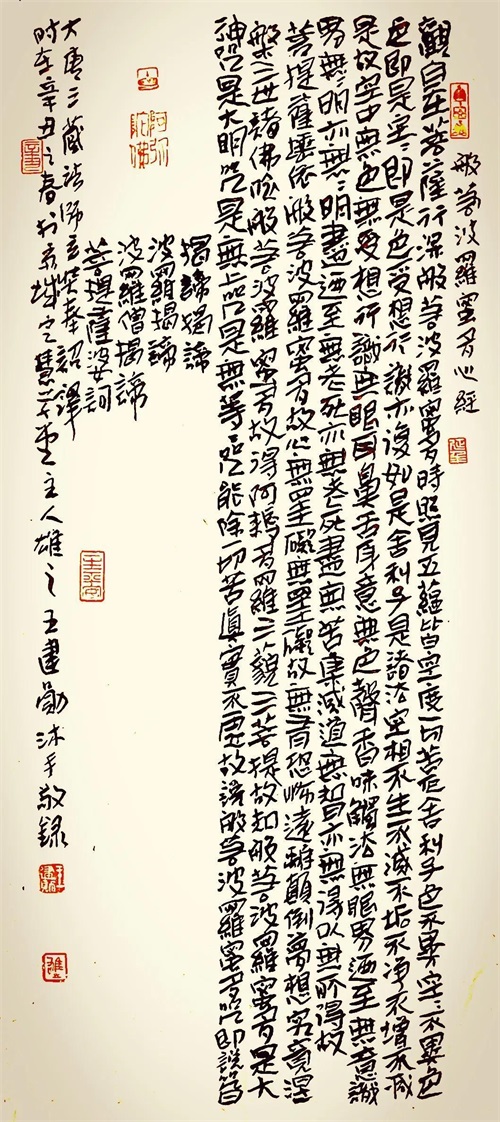 般若波羅蜜多心經
觀自在菩薩行深般若波羅蜜多時照見五蘊皆空度一切苦厄舍利子色不異空〻不異色
色即是空〻即是色受想行識亦復如是舍利子是諸法空相不生不滅不垢不淨不增不減
是故空中無色無受想行識無眼耳鼻舌身意無色聲香味觸法無眼界迺至無意識
界無無明亦無〻明盡迺至無老死亦無老死盡無苦集滅道無智亦無得以無所得故
菩提薩埵依般若波羅蜜多故心無罣礙無罣礙故無有恐怖遠離顛倒夢想究竟涅
槃三世諸佛依般若波羅蜜多故得阿耨多羅三藐三菩提故知般若波羅蜜多是大
神咒是大明咒是無上咒是無等〻咒能除一切苦真實不虛故說般若波羅蜜多咒即說咒曰
揭諦揭諦
波羅揭諦
波羅僧揭諦
菩提薩婆訶
阿弥陀佛
大唐三藏法師玄奘奉詔譯
时在辛丑之春於京城定慧堂主人雄之王建勛沐手敬録